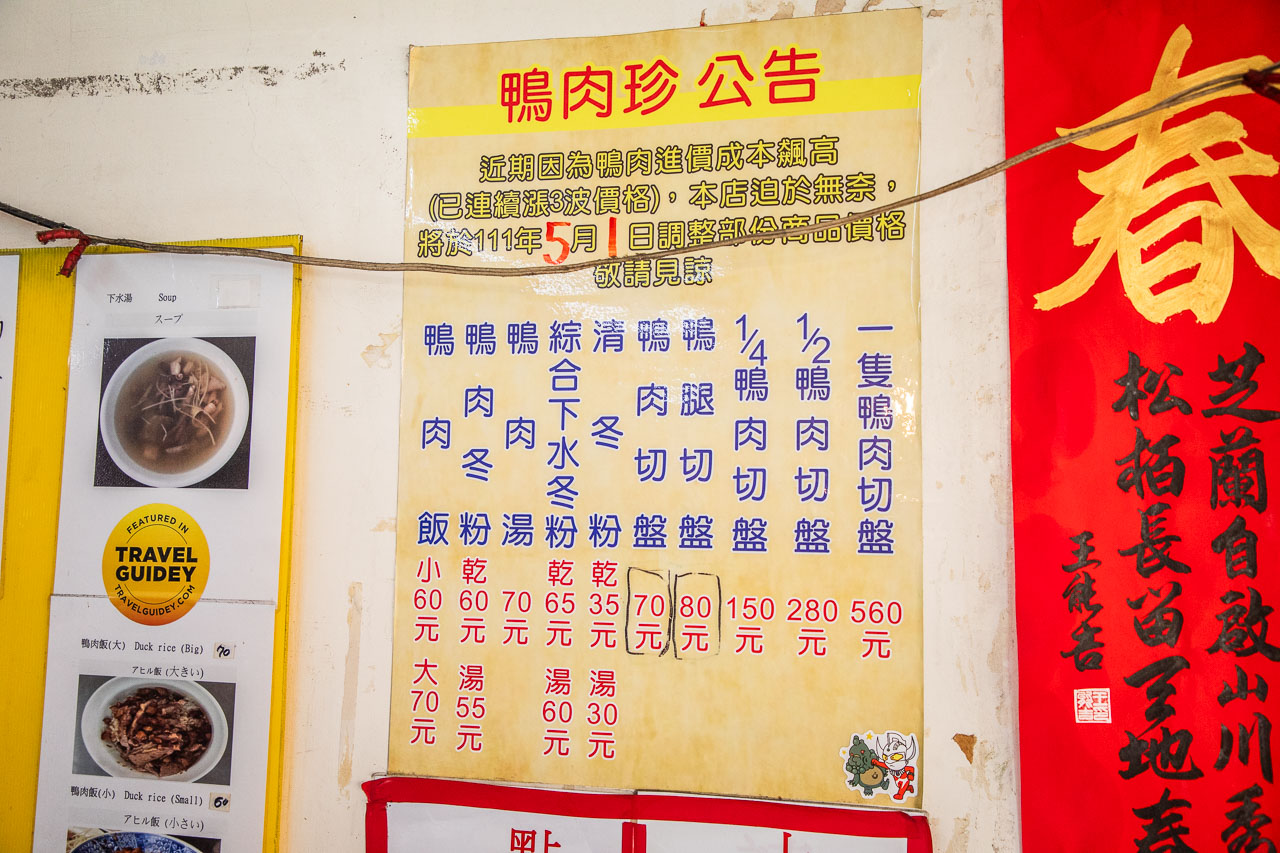 鴨肉珍 公告
近期因為鴨肉進價成本飆高
(已連續漲3波價格)，本店迫於無奈，
將於111年5月1日調整部份商品價格
敬請見諒
一隻鴨肉切盤 560元
1/2鴨肉切盤 280元
1/4鴨肉切盤 150元
鴨腿切盤 80元
鴨肉切盤 70元
清冬粉 乾35元 湯30元
綜合下水冬粉 乾65元 湯60元
鴨肉湯 70元
鴨肉冬粉 乾60元 湯55元
鴨肉飯 小60元 大70元
下水湯 Soup
スープ
FEATURED IN
TRAVEL
GUIDEY
TRAVELGUIDEY.COM
鴨肉飯(大) Duck rice (Big) 70
アヒル飯 (大きい)
鴨肉飯(小) Duck rice (Small) 60
アヒル飯 (小さい)
春
芝蘭自啟山川秀
松栢長留天地春